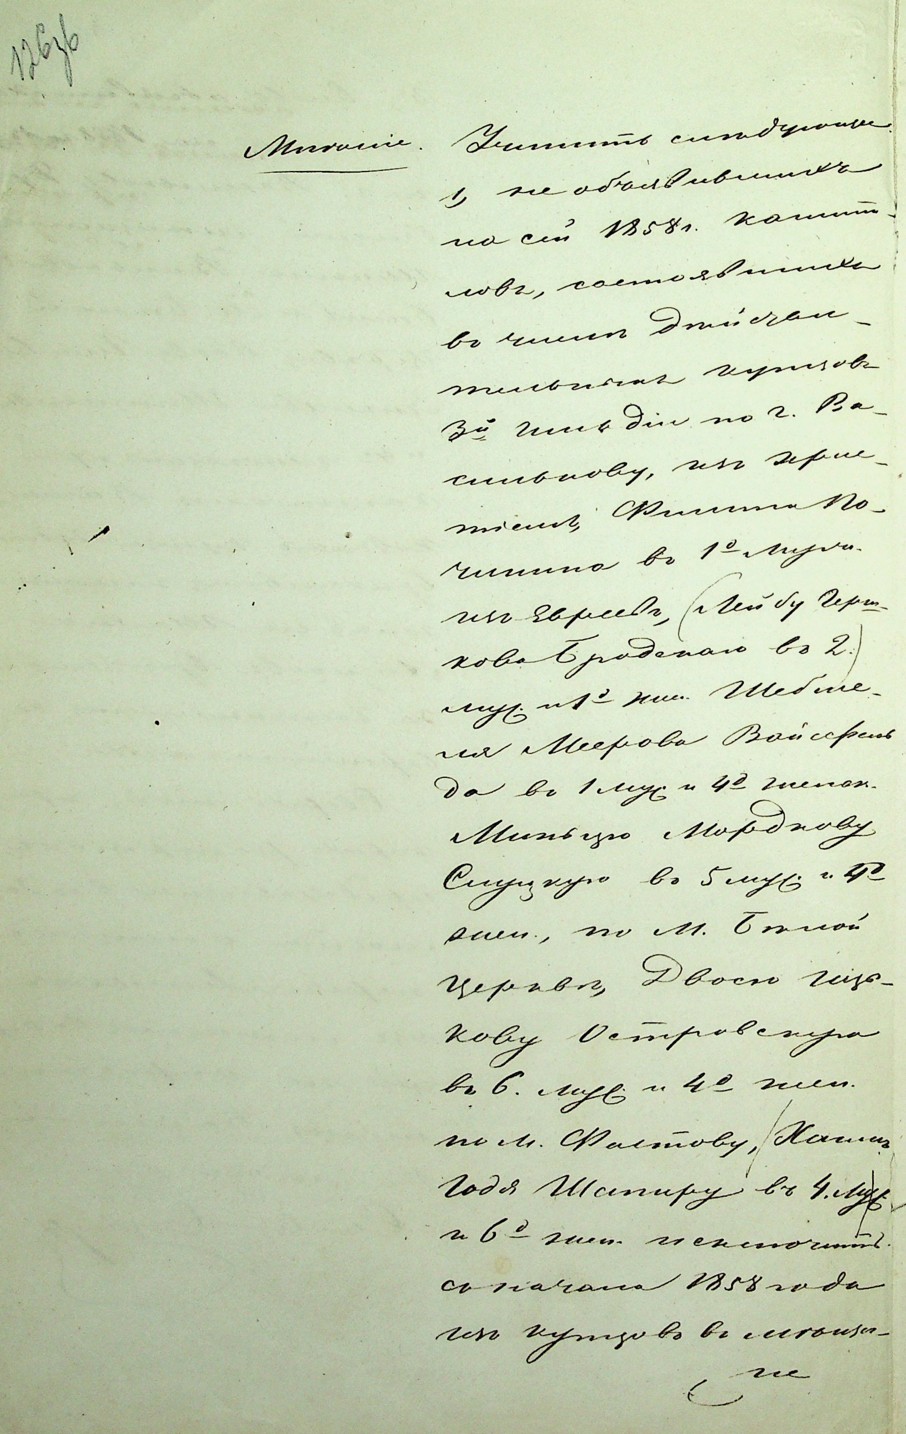 126 зб
Мнѣніе. Учинить слѣдующее
1, не объявившихъ
на сей 1858 г. капита-
ловъ, состоявшихъ
въ числѣ дѣйстви-
тельныхъ купцовъ
3й гильдіи по г. Ва-
силькову, изъ христ-
іянъ, Филипа По-
въ 1º муж.
изъ Евреевъ, (Лейбу Герш-
кова Бродскаго въ 2.)
муж. и 1º жен.
Меерова Вайсфель
да въ 1 муж и 4º женск.
Миньцю Мордкову
Слуцкую въ 5 муж. и 4º
жен., по м. Бѣлой
церкви, Двосю Иць-
кову Островскую
въ 6. муж. и 4º жен.
по м. Фастову, (Хаима
Годя Шапиру въ 4. муж.)
и 6º жен. исключить
съ начала 1858 года
изъ купцовъ въ мѣща-
не